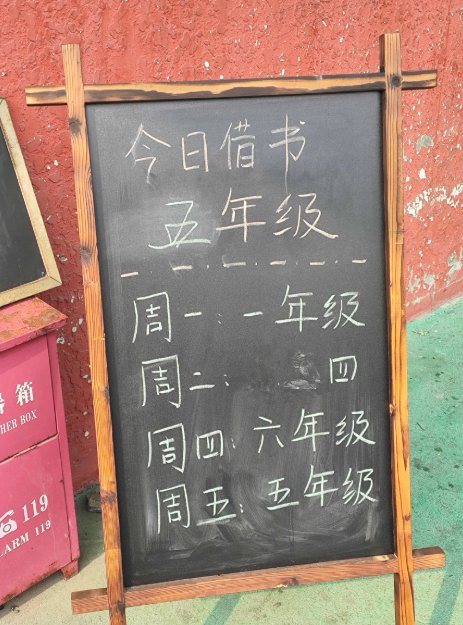 今日借书
五年级
周一：一年级
周二： 四
周四：六年级
周五：五年级
器箱
HER BOX
119
ARM 119